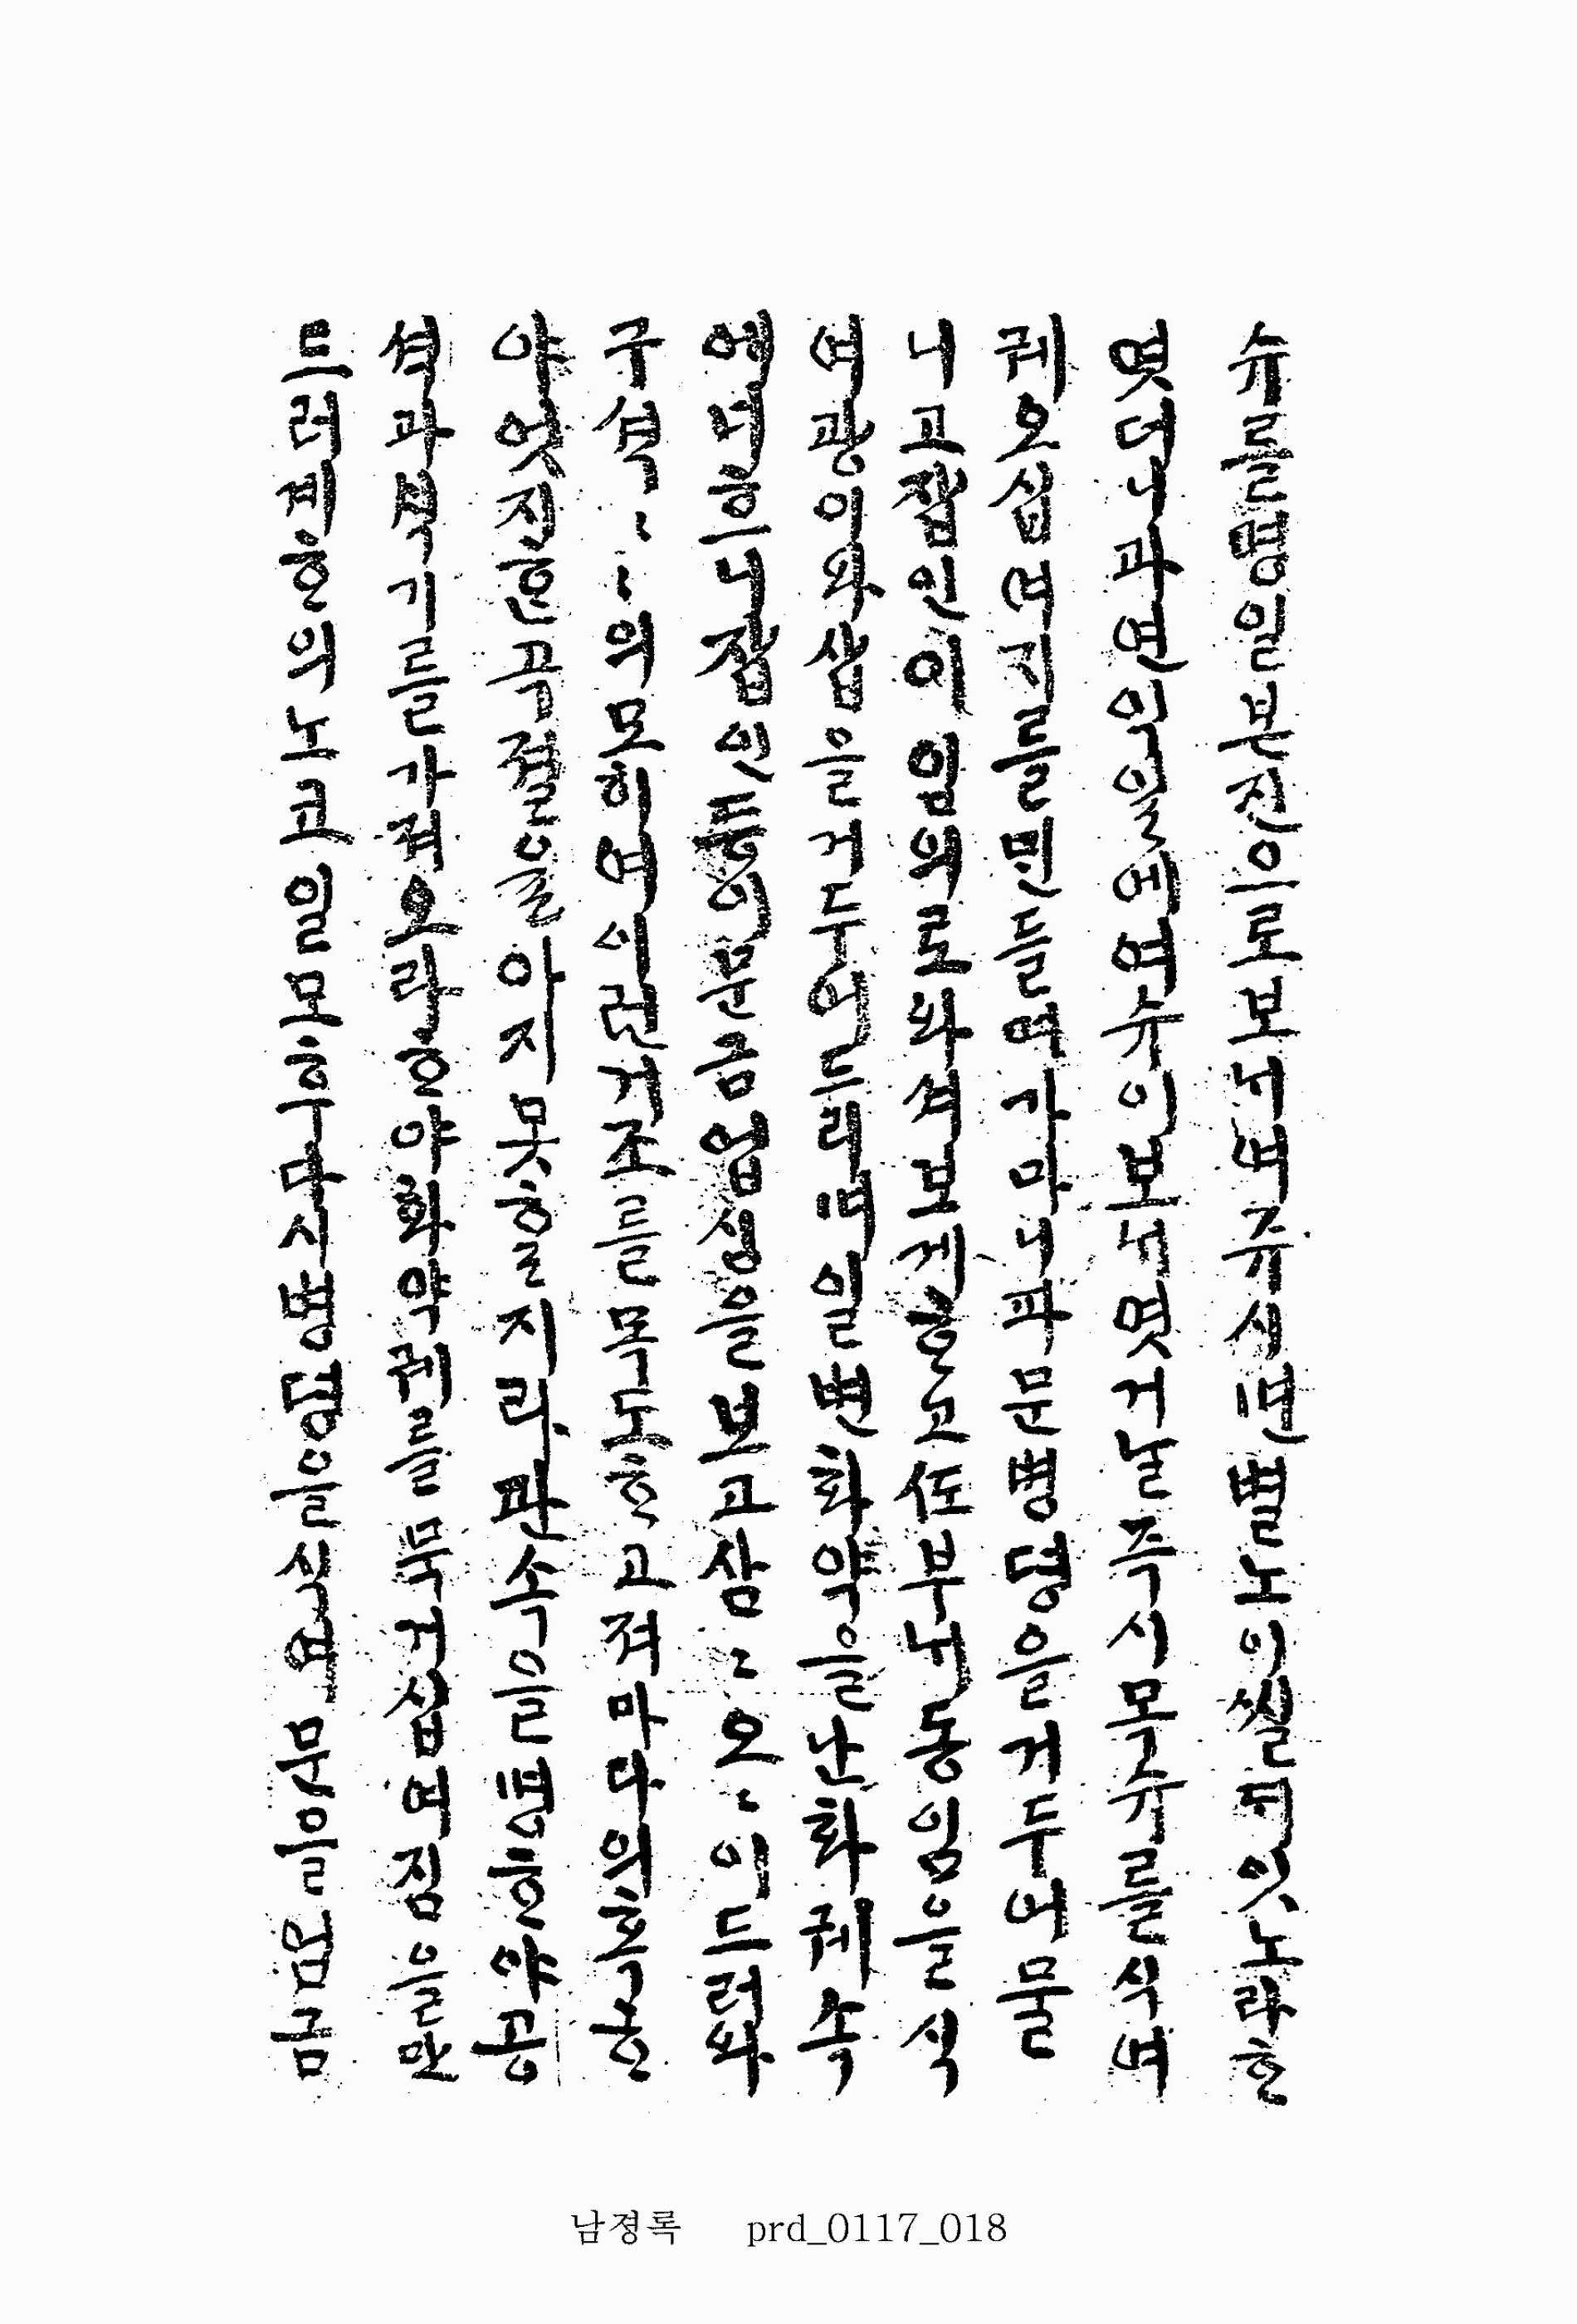 슈를명일본진으로보ᄂᆡ여쥬시면별노이씰ᄃᆡ잇노라ᄒᆞ
엿더니과연익일에여슈이보ᄂᆡ엿거날즉시목슈를식여
궤오십여ᄌᆡ를민들여가마니파문병뎡을거두어물
니고잡인이임의로와셔보게ᄒᆞ고在부ᄂᆡ동임을식
여광이와삽을거두어드리며일변화약을난화궤속
에너흐니잡인등이문금업싱을보고삼〻오〻이드러와
구셕〻〻의모히여이런거조를목도ᄒᆞ고져마다의혹ᄒᆞ
야엇진혼곡졀을아지못ᄒᆞᆯ지라판속을명ᄒᆞ야공
셕과석기를가져오라ᄒᆞ야화약궤를묵거십여짐을만
드러계ᄒᆞ의노고일모후다시병뎡을식여문을엄금